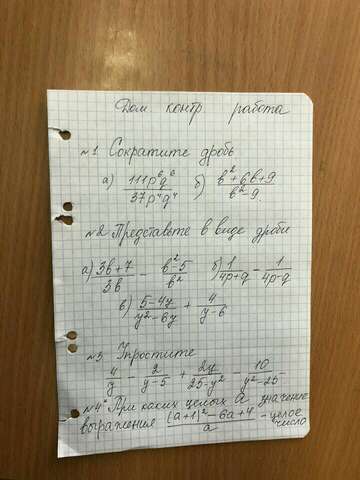 Дом. контр. работа
№1 Сократите дробь
а) 111p⁶q⁶/37p⁴q⁴ б) в²+6в+9/в²-9
№2 Представьте в виде дроби
а) 3в+7/3в - в²-5/в² б) 1/4p+q - 1/4p-q
в) 5-4y/y²-6y + 4/y-6
№3 Упростите
4/y - 2/y-5 + 2y/25-y² - 10/y²-25
№4* При каких целых а значение
выражения (а+1)²-6а+4/а - целое
число